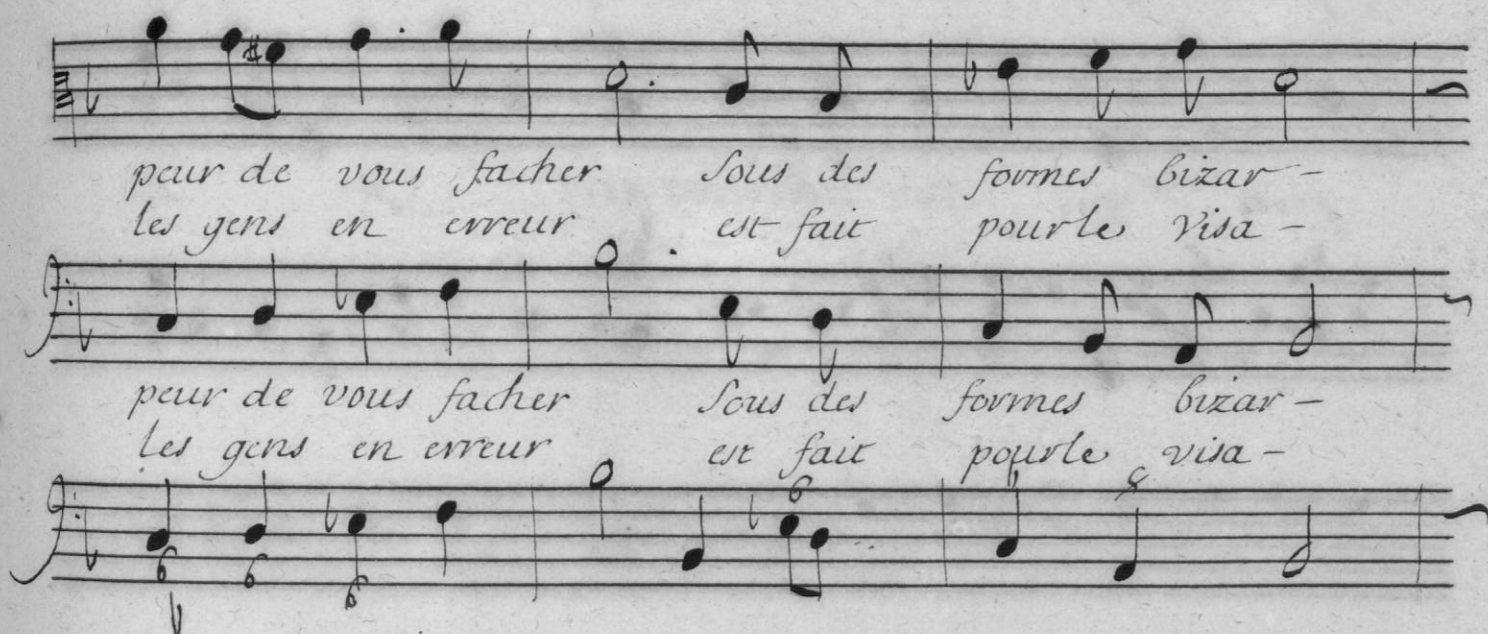 peur de vous facher sous des formes bizar-
les gens en erreur est fait pour le visa-
peur de vous facher sous des formes bizar-
les gens en erreur est fait pour le visa-
6
6 6 6